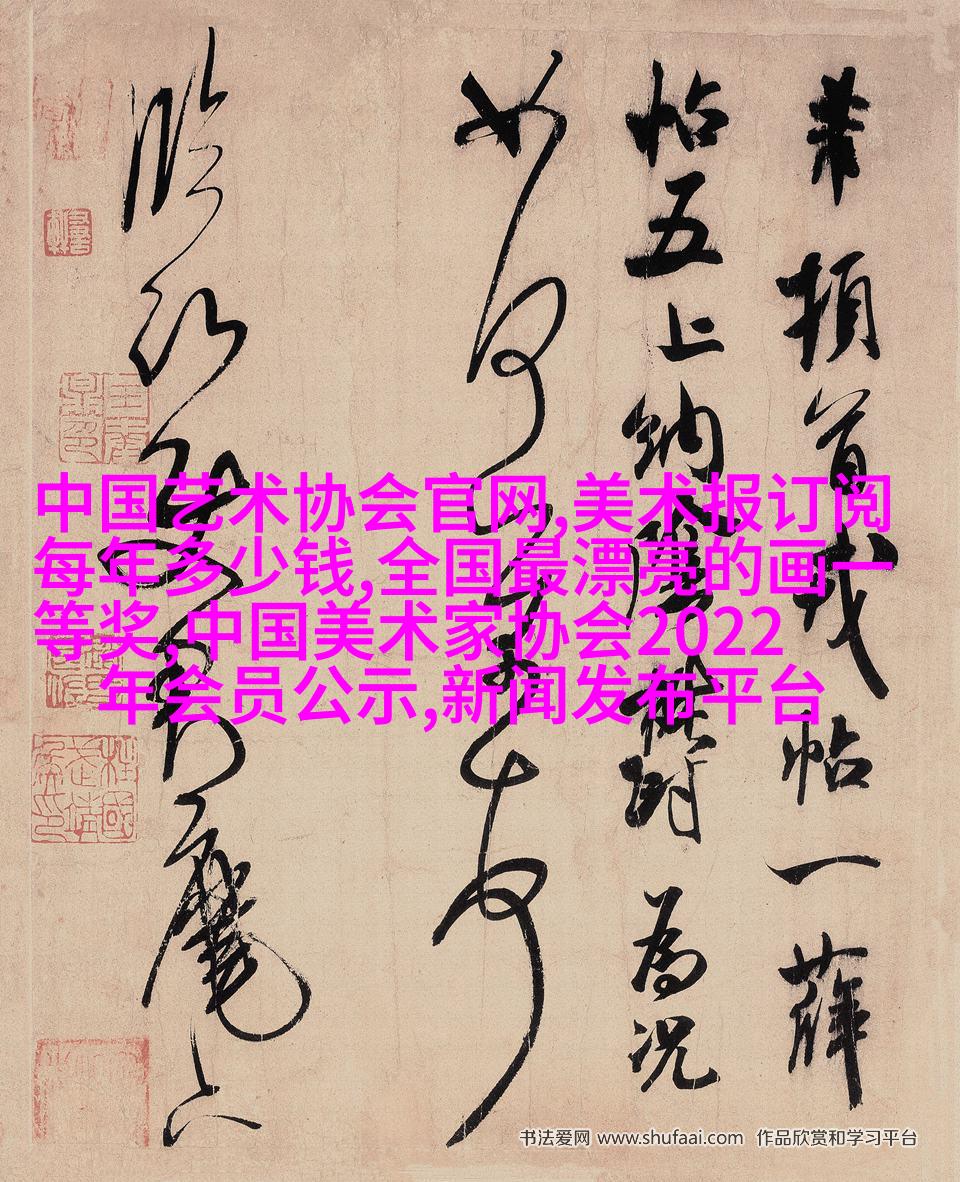 芾頓首戎帖一薛
帖五上納陰鬱為況
如何芾頓首
臨沂使君麾下
中国艺术协会官网,美术报订阅
每年多少钱,全国最漂亮的画一
等奖,中国美术家协会2022
年会员公示,新闻发布平台
书法爱网 www.shufaai.com 作品欣赏和学习平台